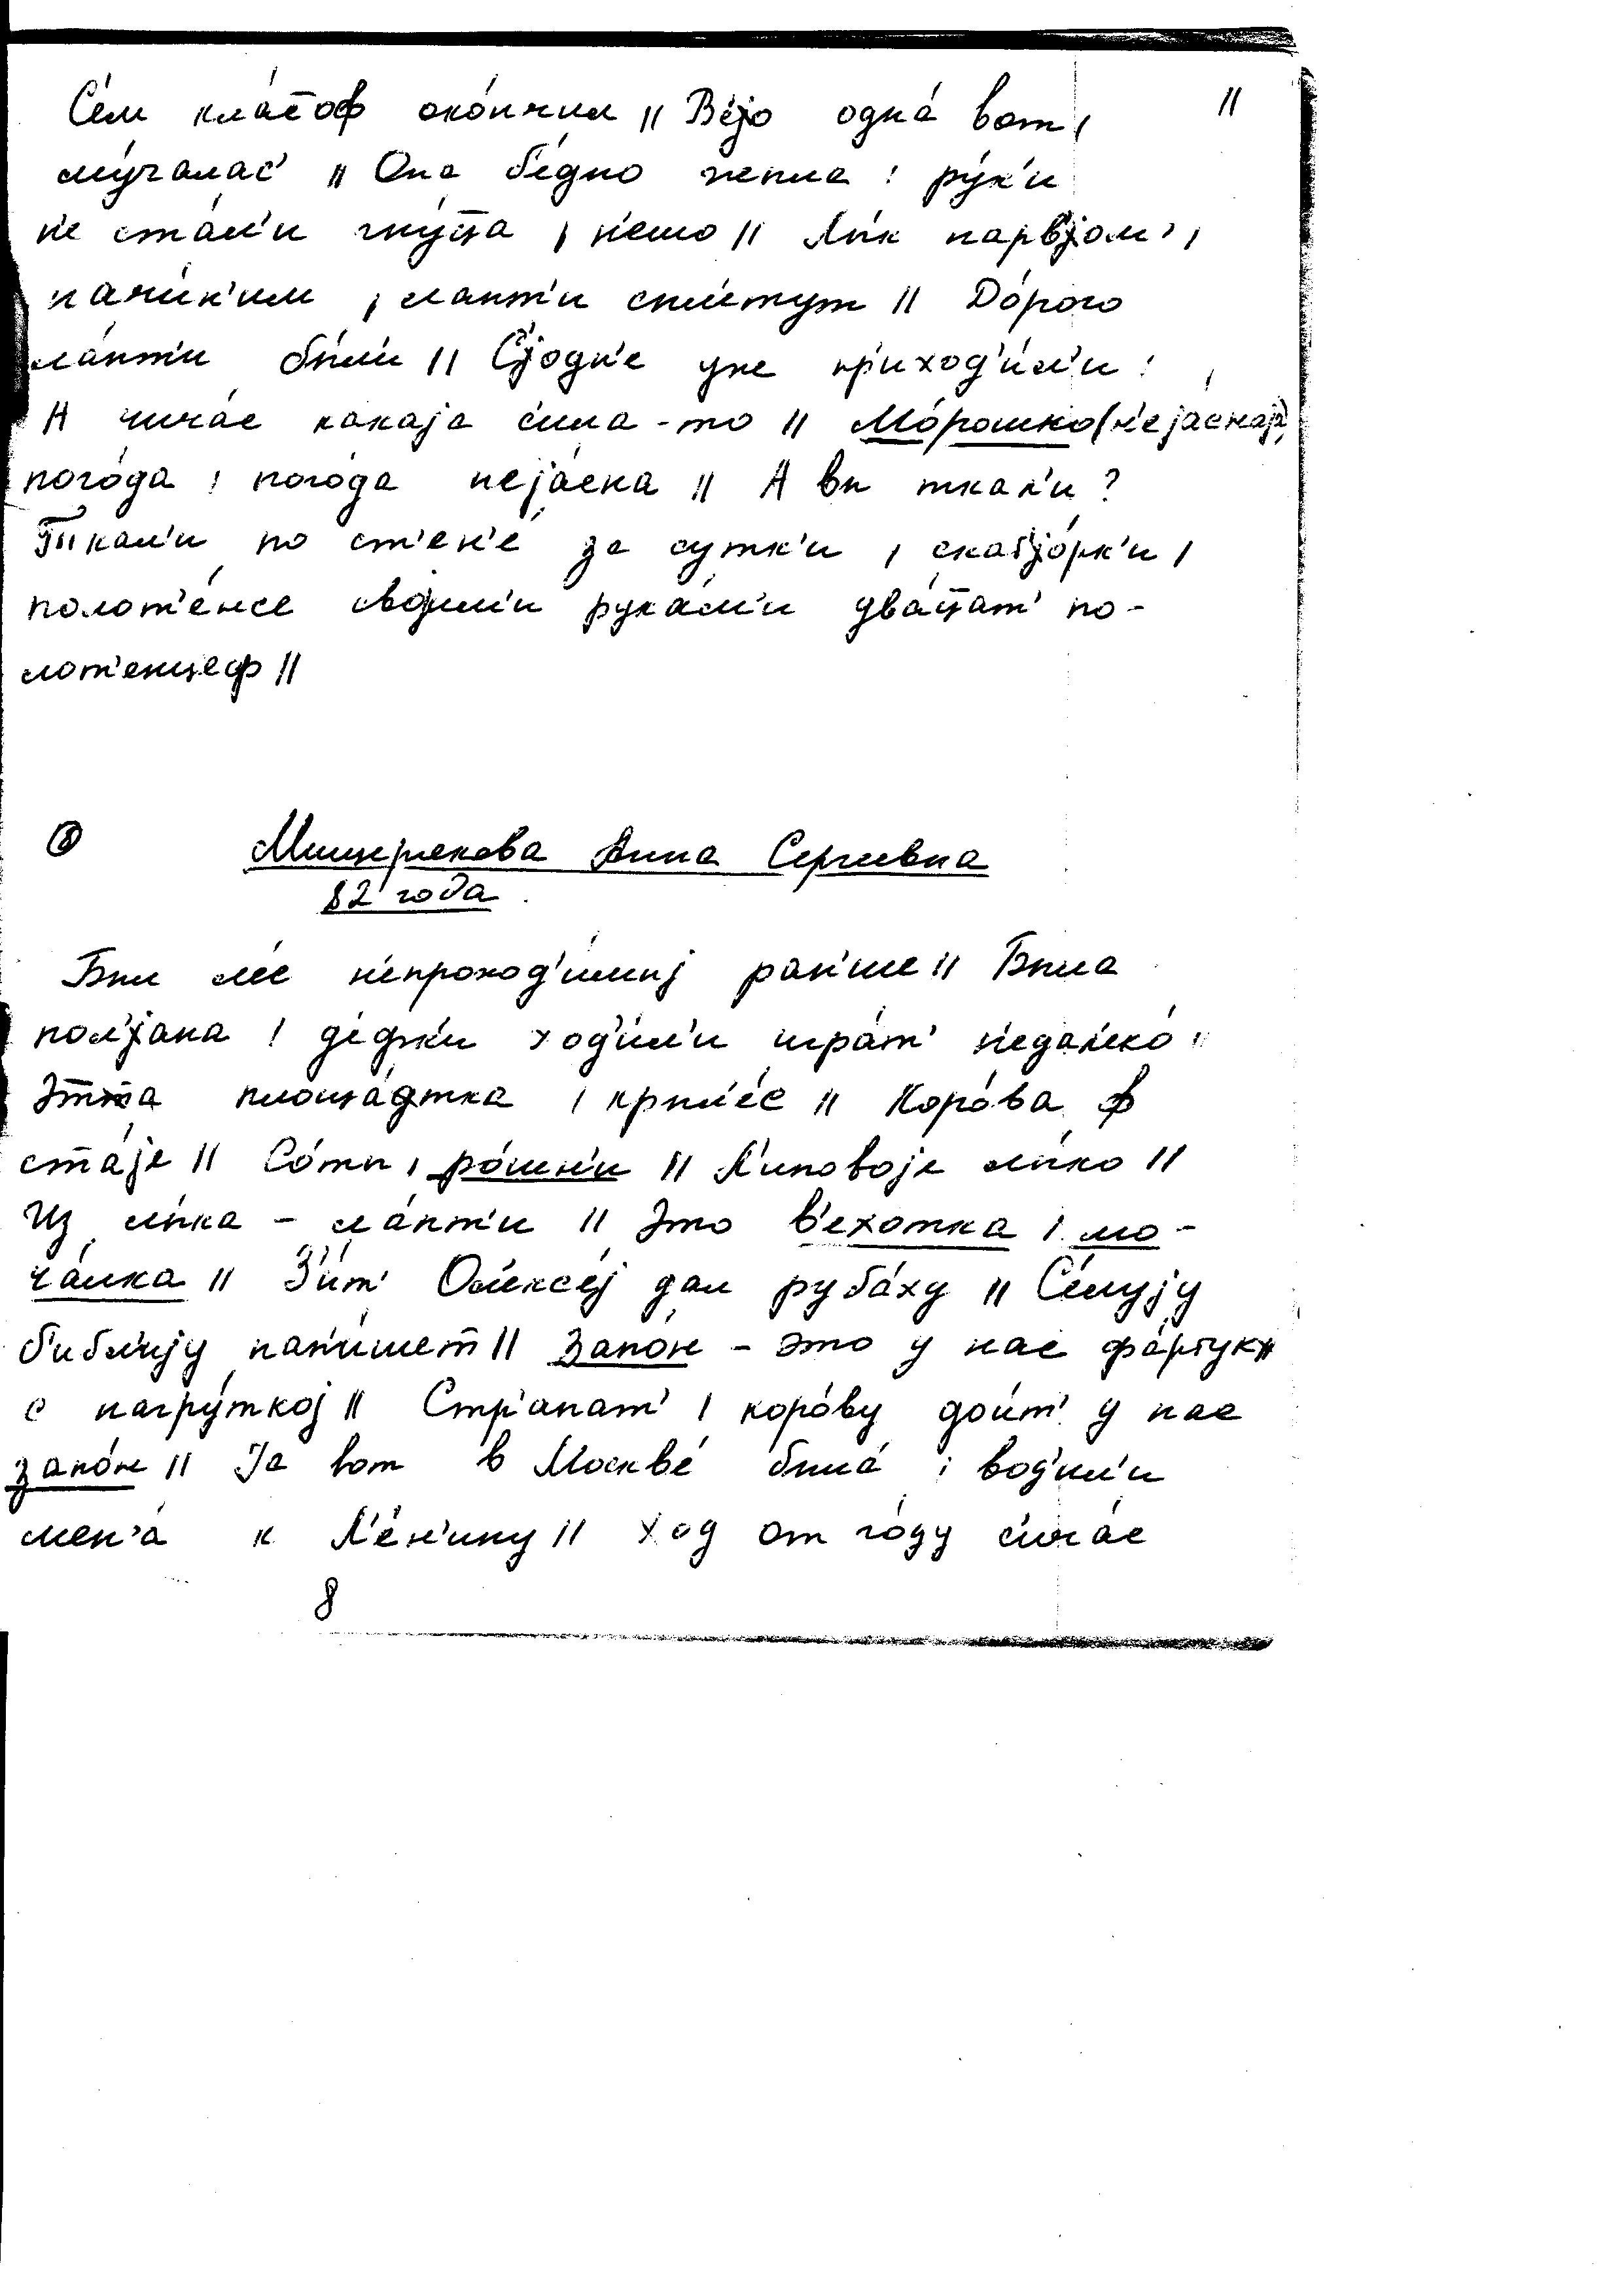 С'ем кла́с̄оф око́нчил || Вс'јо одна́ вот | ||
му́чалас' || Она б'е́дно жила ; ру́к'и
н'е ста́л'и гну́ц̄а | н'ешо || Лы́к нарв'јом' |
начи́к'им | лапт'и спл'иту́т || До́рого
ла́пт'и бы́л'и || С'јодн'е уже пр'иход'и́л'и :
А чича́с кака́ја с'ила-то || Мо́рошко (н'еја́снаја)
пого́да ; пого́да неја́сна || А вы ткал'и ?
Ткал'и по ст'ен'е́ за су́тк'и | скат'јо́рк'и |
полот'е́нсе својим'и рука́м'и два́ц̄ат' по-
лот'енцеф ||
⑧ Мищерякова Анна Сергеевна
82 года
Был л'ес н'епроход'и́мыј ран'ше || Была
пол'јана | д'е́фк'и ход'и́л'и игра́т' н'едал'еко́ ||
Эт̄а площа́дтка | крыл'е́с || Коро́ва ф
ста́је || Со́ты | ро́мк'и || Л'и́повоје лы́ко ||
Из лы́ка – ла́пт'и || Это в'ехотка | мо-
ча́лка || З'ит' Ол'ексе́ј дал руба́ху || Це́лују
б'ибл'ију нап'и́шет || Запо́н – это у нас фа́ртук ||
с нагру́ткој || Стр'апат' | коро́ву дои́т' у нас
запо́н || Ја вот в Москве́ была́ ; вод'ил'и
мен'а́ к Л'е́н'ину || Ход от го́ду с'ича́с
8